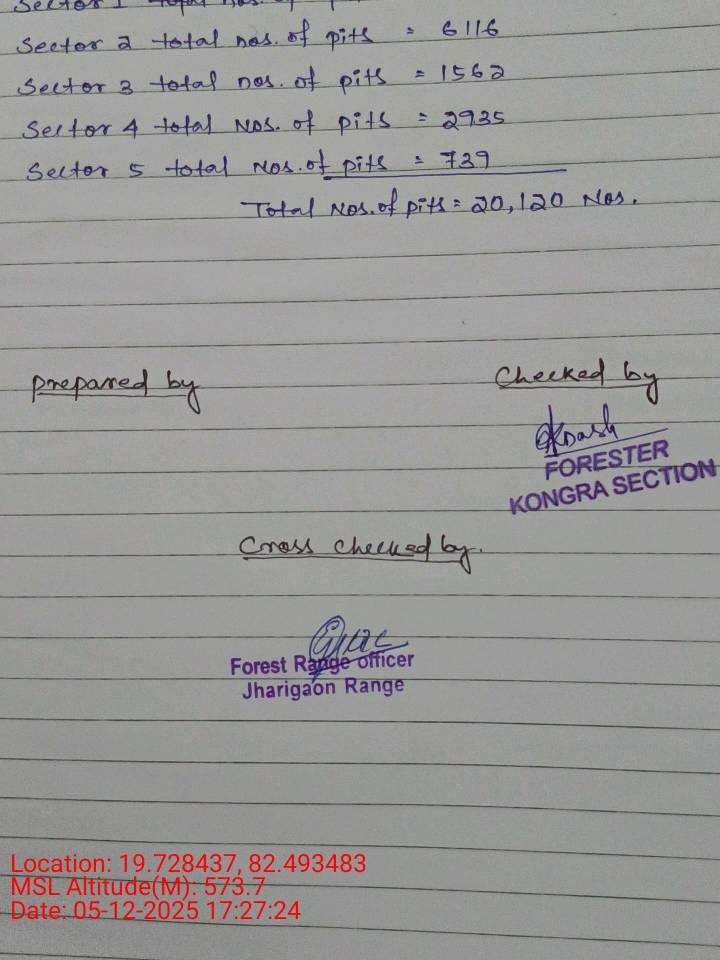 Sector 1 total nos. of
Sector 2 total nos. of pits = 6116
Sector 3 total nos. of pits = 1562
Sector 4 total Nos. of pits = 2935
Sector 5 total Nos. of pits = 739
Total Nos. of pits = 20,120 Nos.
Prepared by
Checked by
Dash
FORESTER
KONGRA SECTION
Cross checked by.
Forest Range officer
Jharigaon Range
Location: 19.728437, 82.493483
MSL Altitude(M): 573.7
Date: 05-12-2025 17:27:24